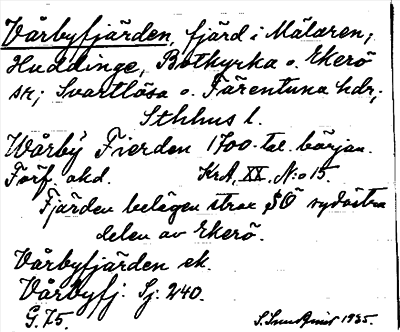 Vårbyfjärden, fjärd i Mälaren,
Huddinge, Botkyrka o. Ekerö
snr; Svartlösa o. Färentuna hdr;
Sthlms l.
Wårby Fierden 1700-tal. början.
Förf. okd. KrA, XX, N:o 15.
Fjärden belägen strax SÖ sydöstra
delen av Ekerö.
Vårbyfjärden ek.
Vårbyfj. Sj. 240.
G. 75. 1935.